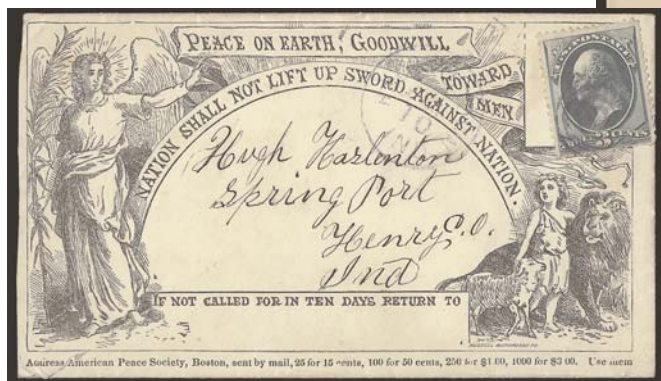 PEACE ON EARTH, GOODWILL
TOWARD
MEN
NATION SHALL NOT LIFT UP SWORD AGAINST NATION.
U.S. POSTAGE
3 CENTS
10
Hugh Harlinton
Spring Port
Henry C.O.
Ind
IF NOT CALLED FOR IN TEN DAYS RETURN TO
Address American Peace Society, Boston, sent by mail, 25 for 15 cents, 100 for 50 cents, 250 for $1 00, 1000 for $3 00. Use them